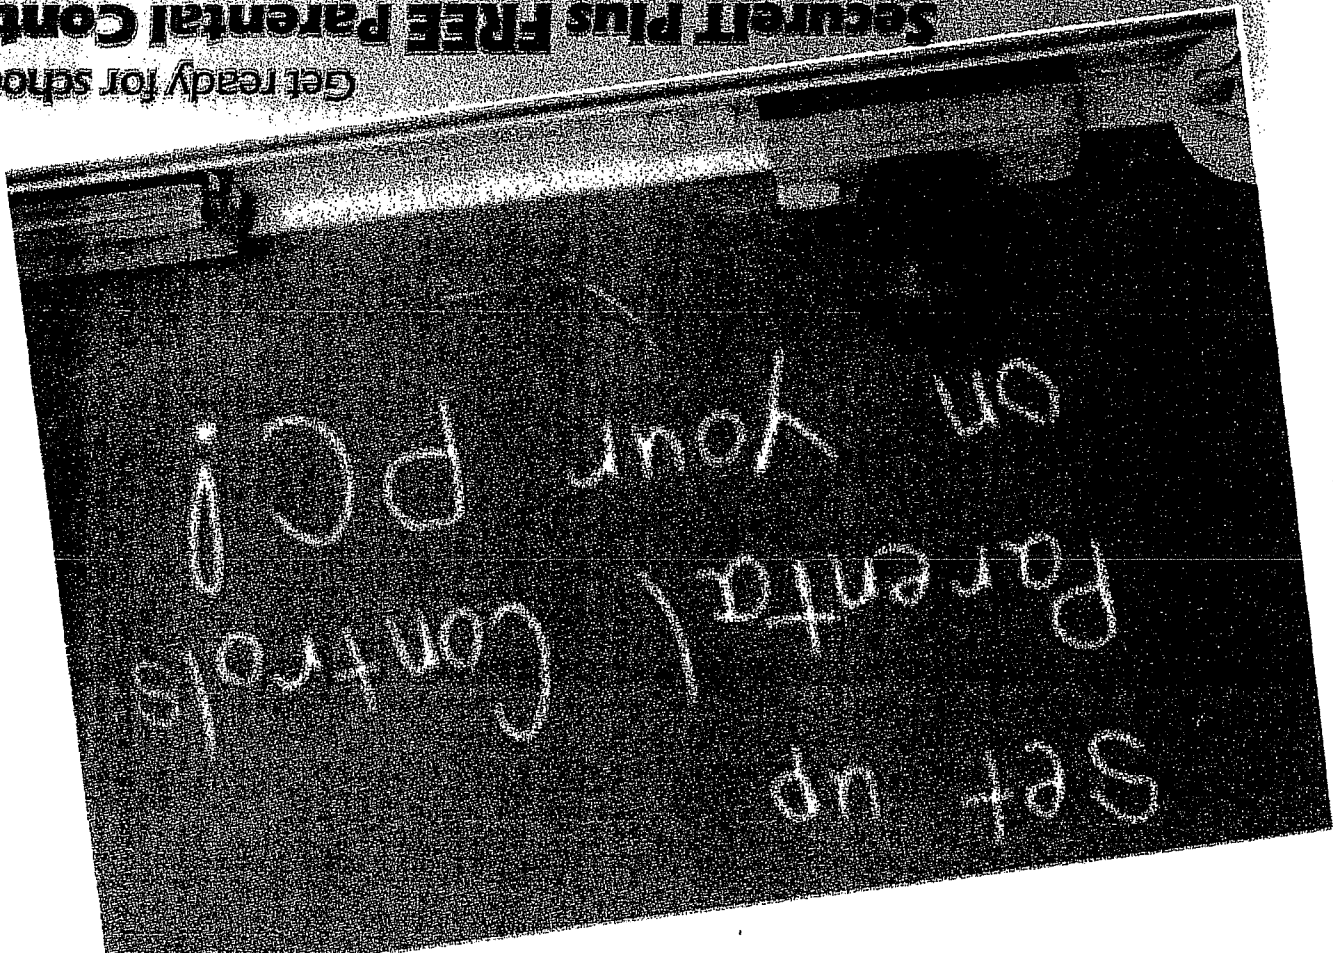 Set up
Parental Controls
on your PC!
Get ready for
SecureIT Plus FREE Parental